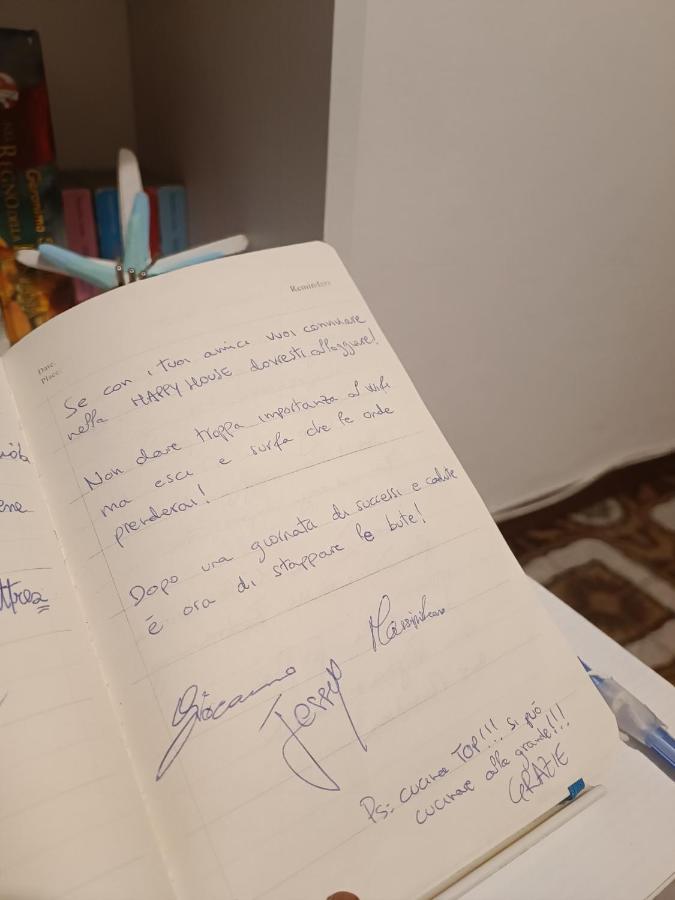 NEL
REGNO DELLA
Geronimo
Reminders
Date:
Place:
Se con i tuoi amici vuoi connurare
nella HAPPY HOUSE dovresti alloggiare!
Non dare troppa importanza al wifi
ma esci e surfa che le onde
prenderai!
Dopo una giornata di successi e cadute
è ora di stappare le bute!
Giacomo
Massimiliano
Jessy
Ps: cucina TOP!!! si può
cucinare alla grande!!!
GRAZIE